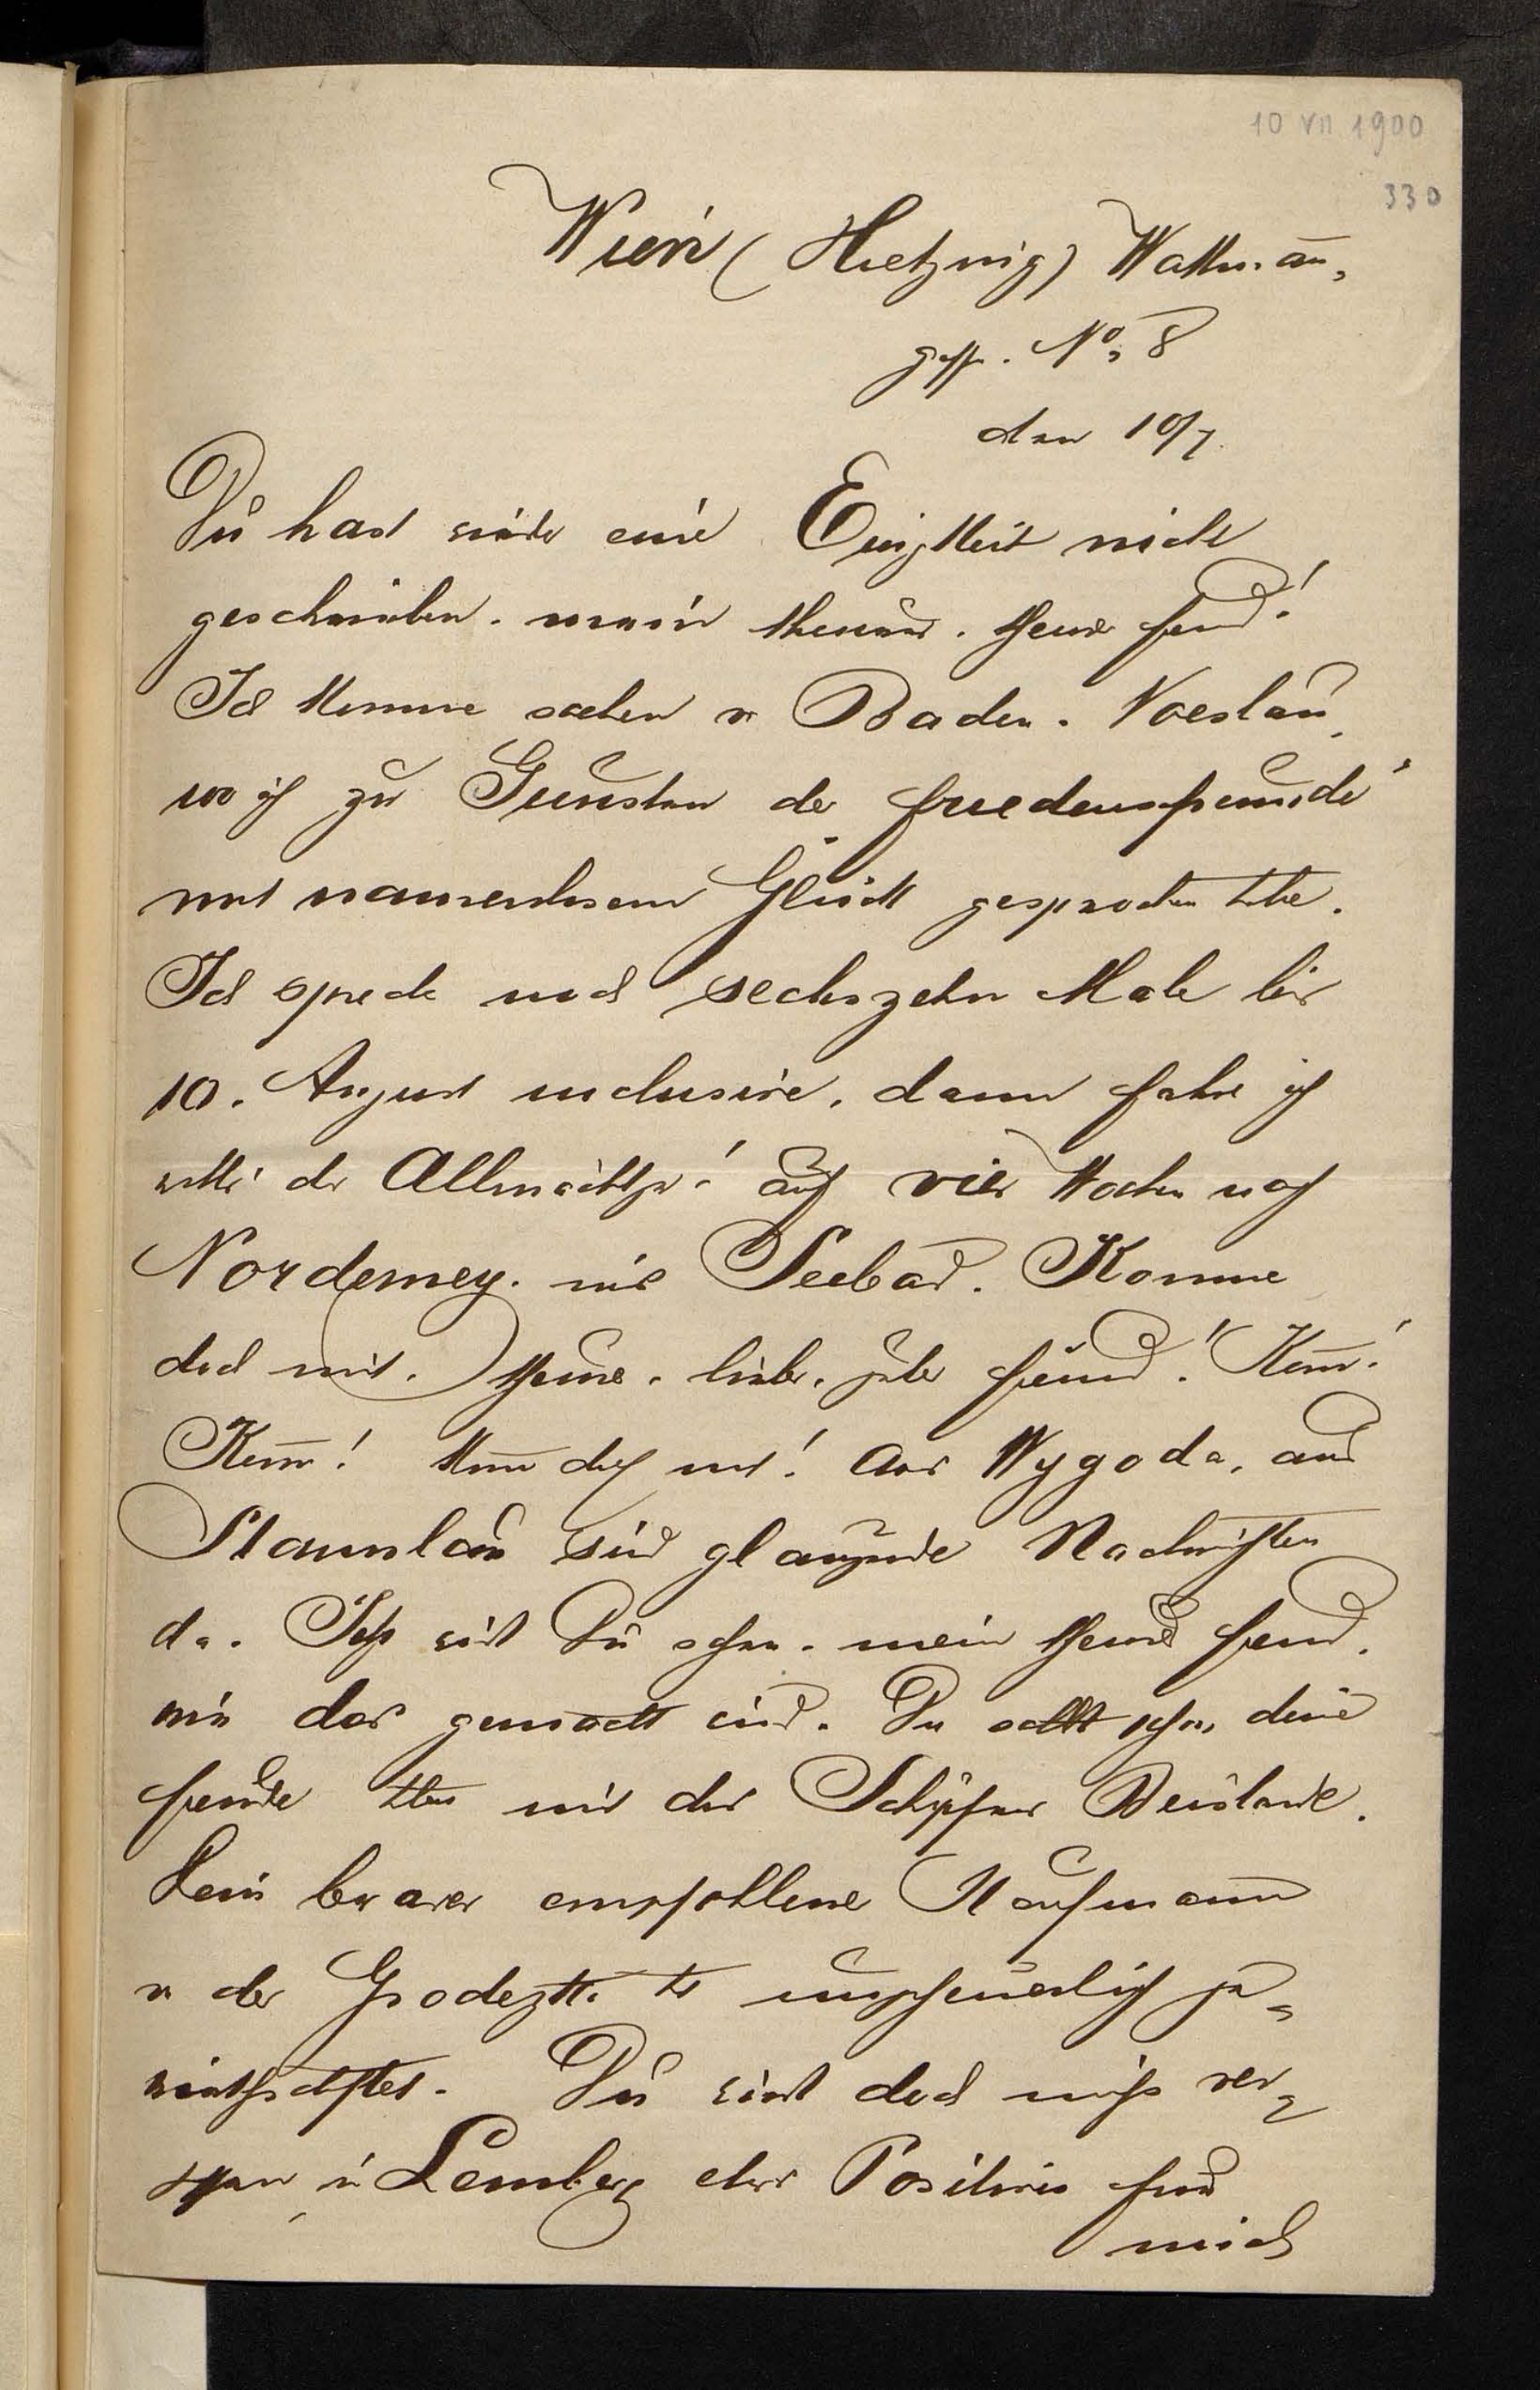 10 VII 1900
330
Wien (Hietzing) Wattmañ,
gasse. No, 8
den 10/7.
Du hast wieder eine Ewigkeit nicht
geschrieben. mein theurer. theurer Freund!
Ich komme soeben v Baden. Voeslau,
wo ich zu Gunsten der Friedensfreunde
mit namenlosem Glück gesprochen habe.
Ich spreche noch sechszehn Male bis
10. August inclusive. dann fahre ich
der Allmächtge! auf vier Wochen nach
Norderney. ins Seebad. Komme
doch mit. theurer. lieber. guter Freund! Kom̄!
Kom̄! Kom̄ doch mit! Aus Wygoda. aus
Stanislau sind glänzende Nachrichten
da. Jetzt wirst Du sehen. mein theurer Freund.
wie das gemacht wird. Du sollst sehen deine
Freude haben mit des Schöpfers Beistande.
Dein braver empfohlener Kaufmann
v der Grodezka hat ungeheuerlich ge„
wirthschaftet. Du wirst doch nicht ver„
gessen in Lemberg etwas Positives für
mich